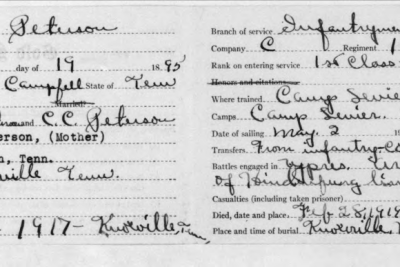 Peterson
day of 19 1895
Campbell State of Tenn
Married?
and C. C. Peterson
erson, (Mother)
n, Tenn.
ville Tenn.
1917 - Knoxville, Tenn,
Branch of service Infantryman
Company C Regiment 1
Rank on entering service 1st Class
Honors and citations
Where trained Camp Sevier
Camps Camp Sevier.
Date of sailing May. 2 19
Transfers From infantry Co
Battles engaged in Ypres.
Of Hindenburg line
Casualties (including taken prisoner)
Died, date and place. Feb. 28, 1919
Place and time of burial. Knoxville,